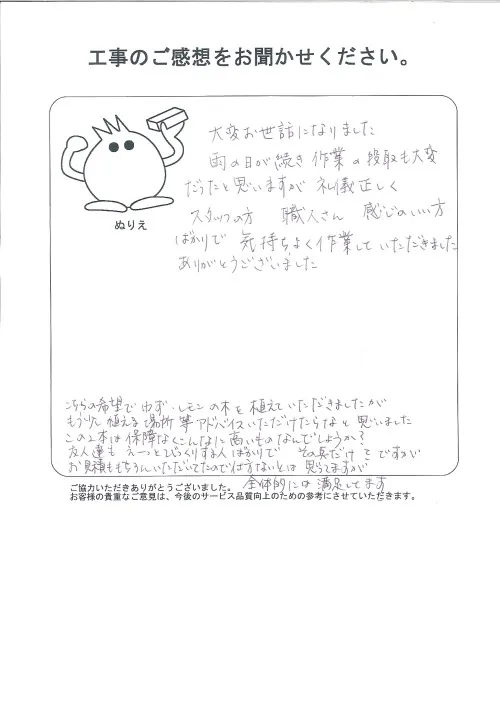 工事のご感想をお聞かせください。
大変お世話になりました
雨の日が続き 作業の段取も大変
だったと思いますが 礼儀正しく
スタッフの方 職人さん 感じのいい方
ばかりで 気持ちよく作業していただきました
ありがとうございました
ぬりえ
こちらの希望で ゆず・レモンの木を植えていただきましたが
もう少し植える場所等アドバイスいただけたらなと思いました
この2本は保障なくこんなに高いものなんでしょうか?
友人達も えーっとびっくりする人ばかりで その点だけ ですが
お見積ももちろんいただいてたので仕方ないとは 思ってますが
全体的には満足してます
ご協力いただきありがとうございました。
お客様の貴重なご意見は、今後のサービス品質向上のための参考にさせていただきます。